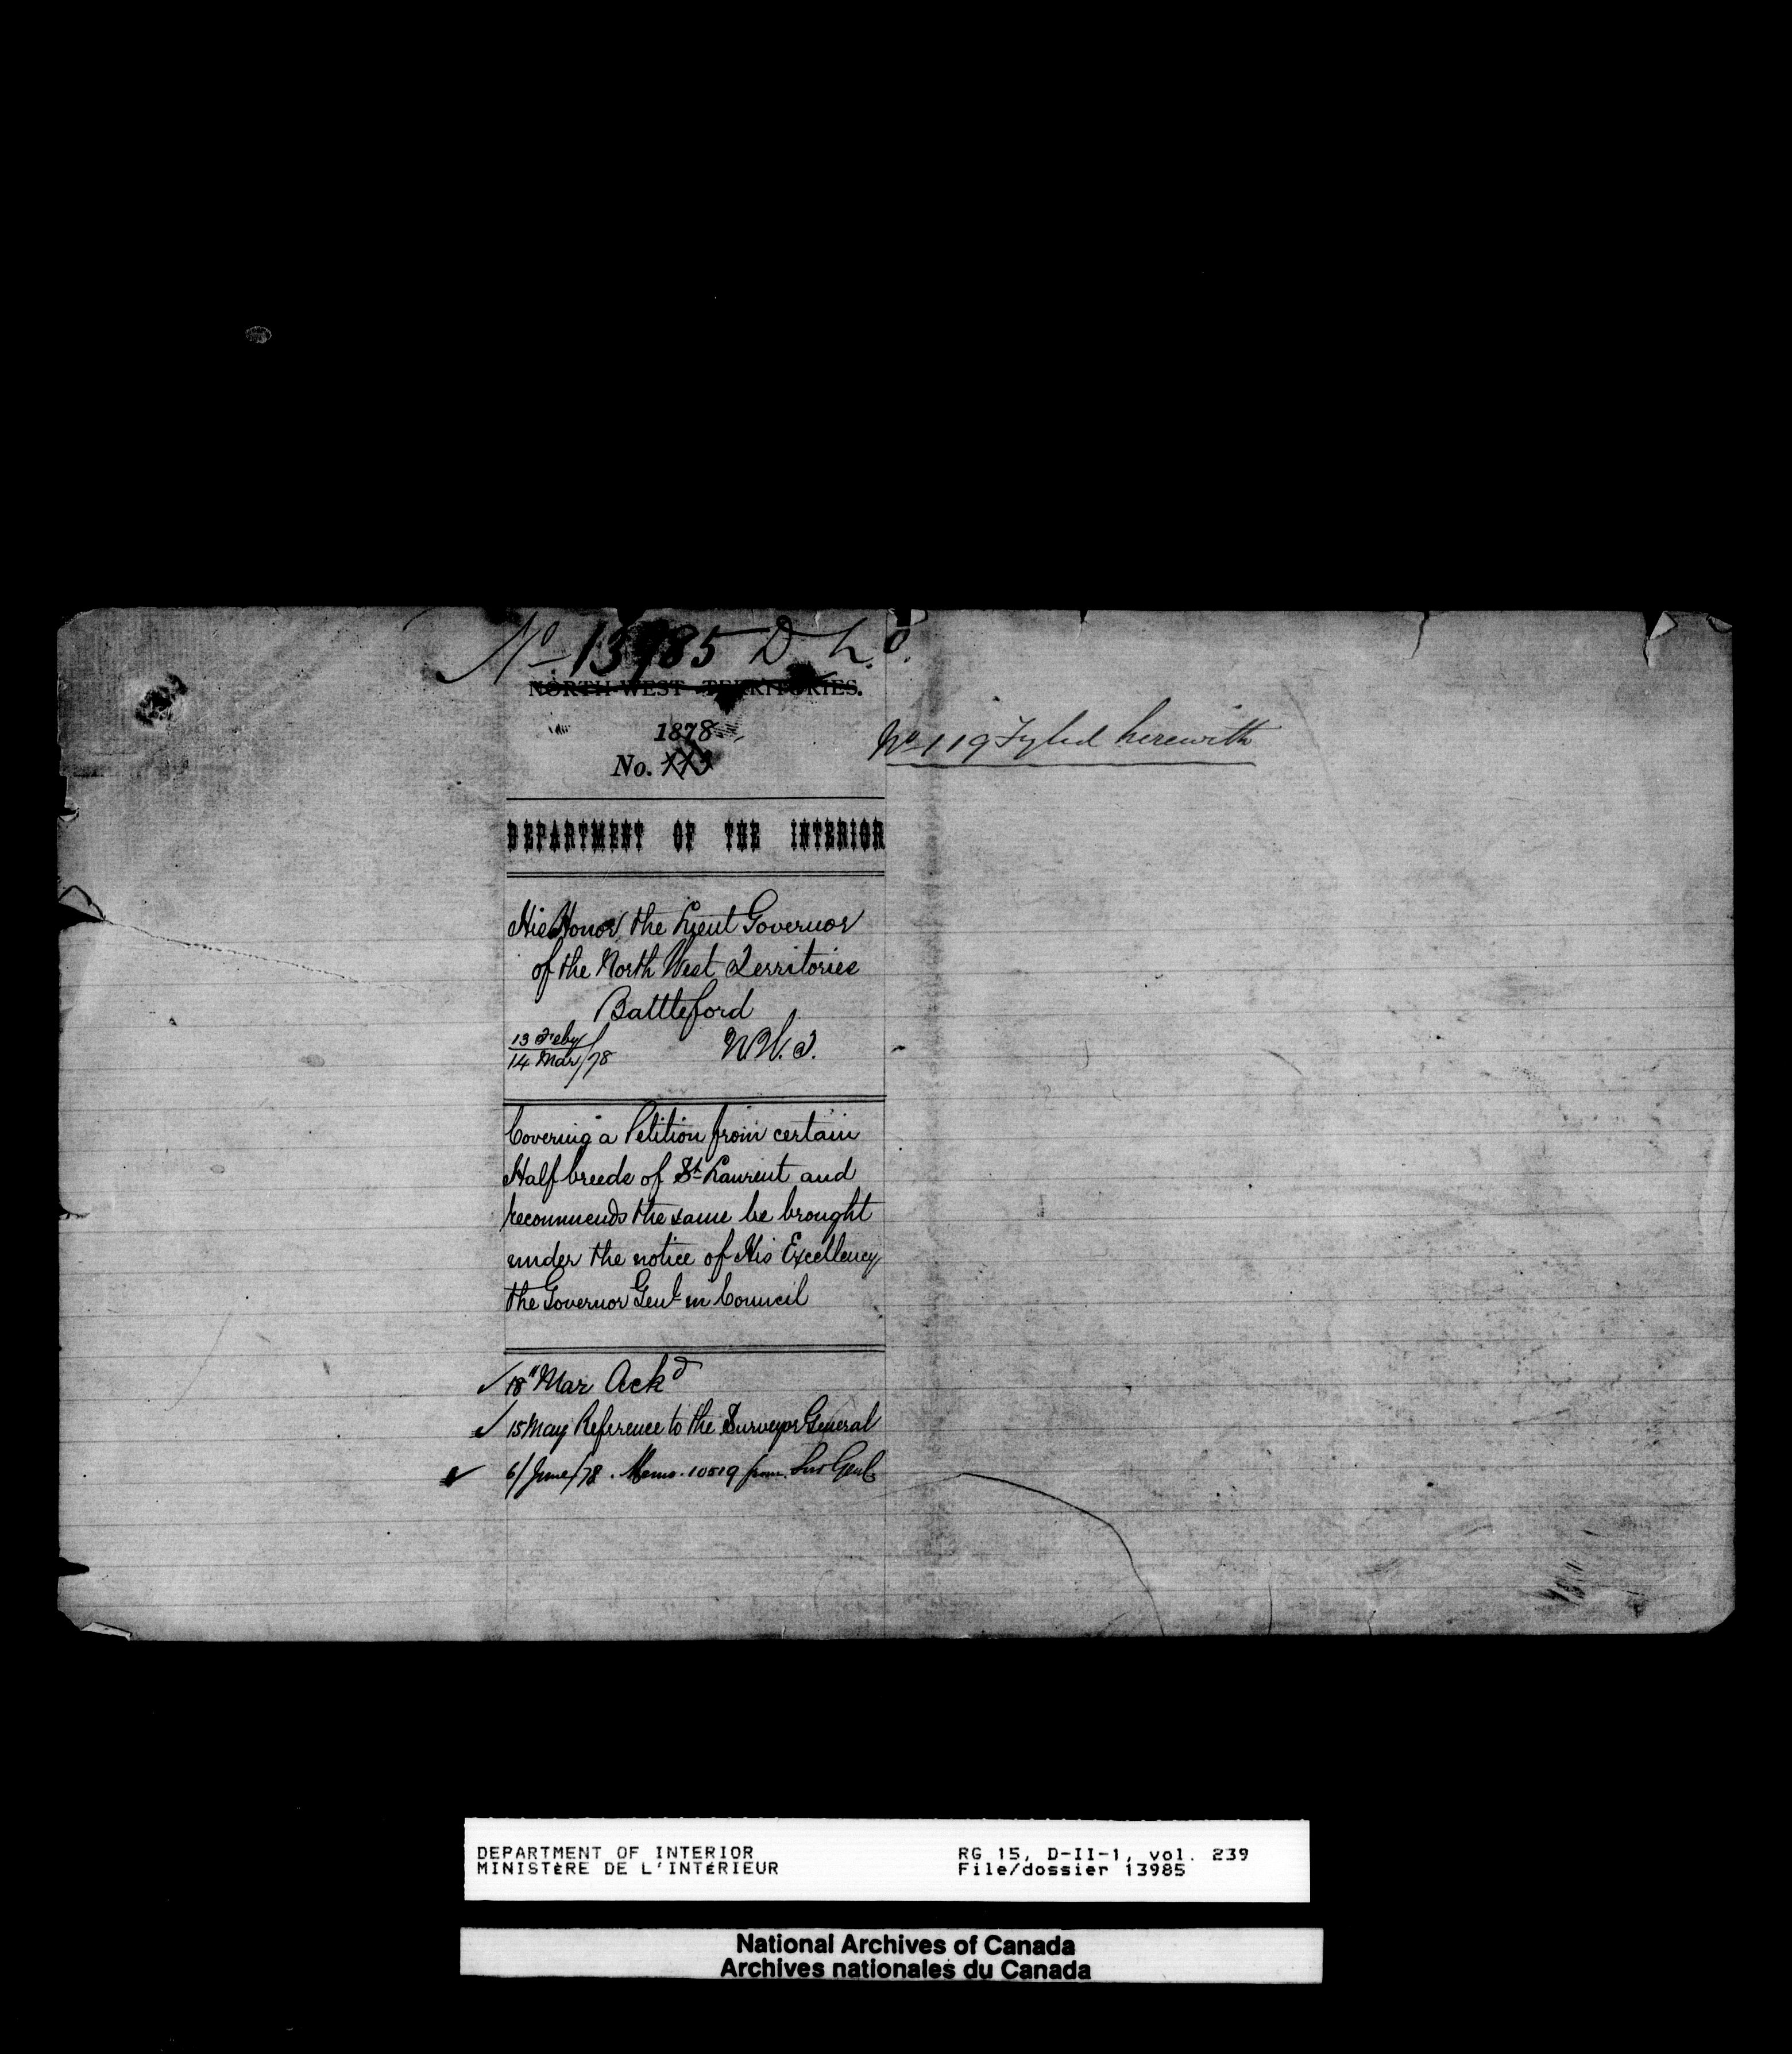 No 13985 D. L. O.
NORTH-WEST TERRITORIES.
1878
No. 113
No 119 Fyled herewith
DEPARTMENT OF THE INTERIOR
His Honor the Lieut Governor
of the North West Territories
Battleford
13 Feby
14 Mar/78
N.W.T.
Covering a Petition from certain
Half breeds of St Laurent and
recommends the same be brought
under the notice of His Excellency
the Governor Genl in Council
✓ 18" Mar Ackd
✓ 15 May Reference to the Surveyor General
✓ 6/June/78. Memo. 10519 from Sur Genl
DEPARTMENT OF INTERIOR
MINISTÈRE DE L'INTÉRIEUR
RG 15, D-II-1, vol. 239
File/dossier 13985
National Archives of Canada
Archives nationales du Canada